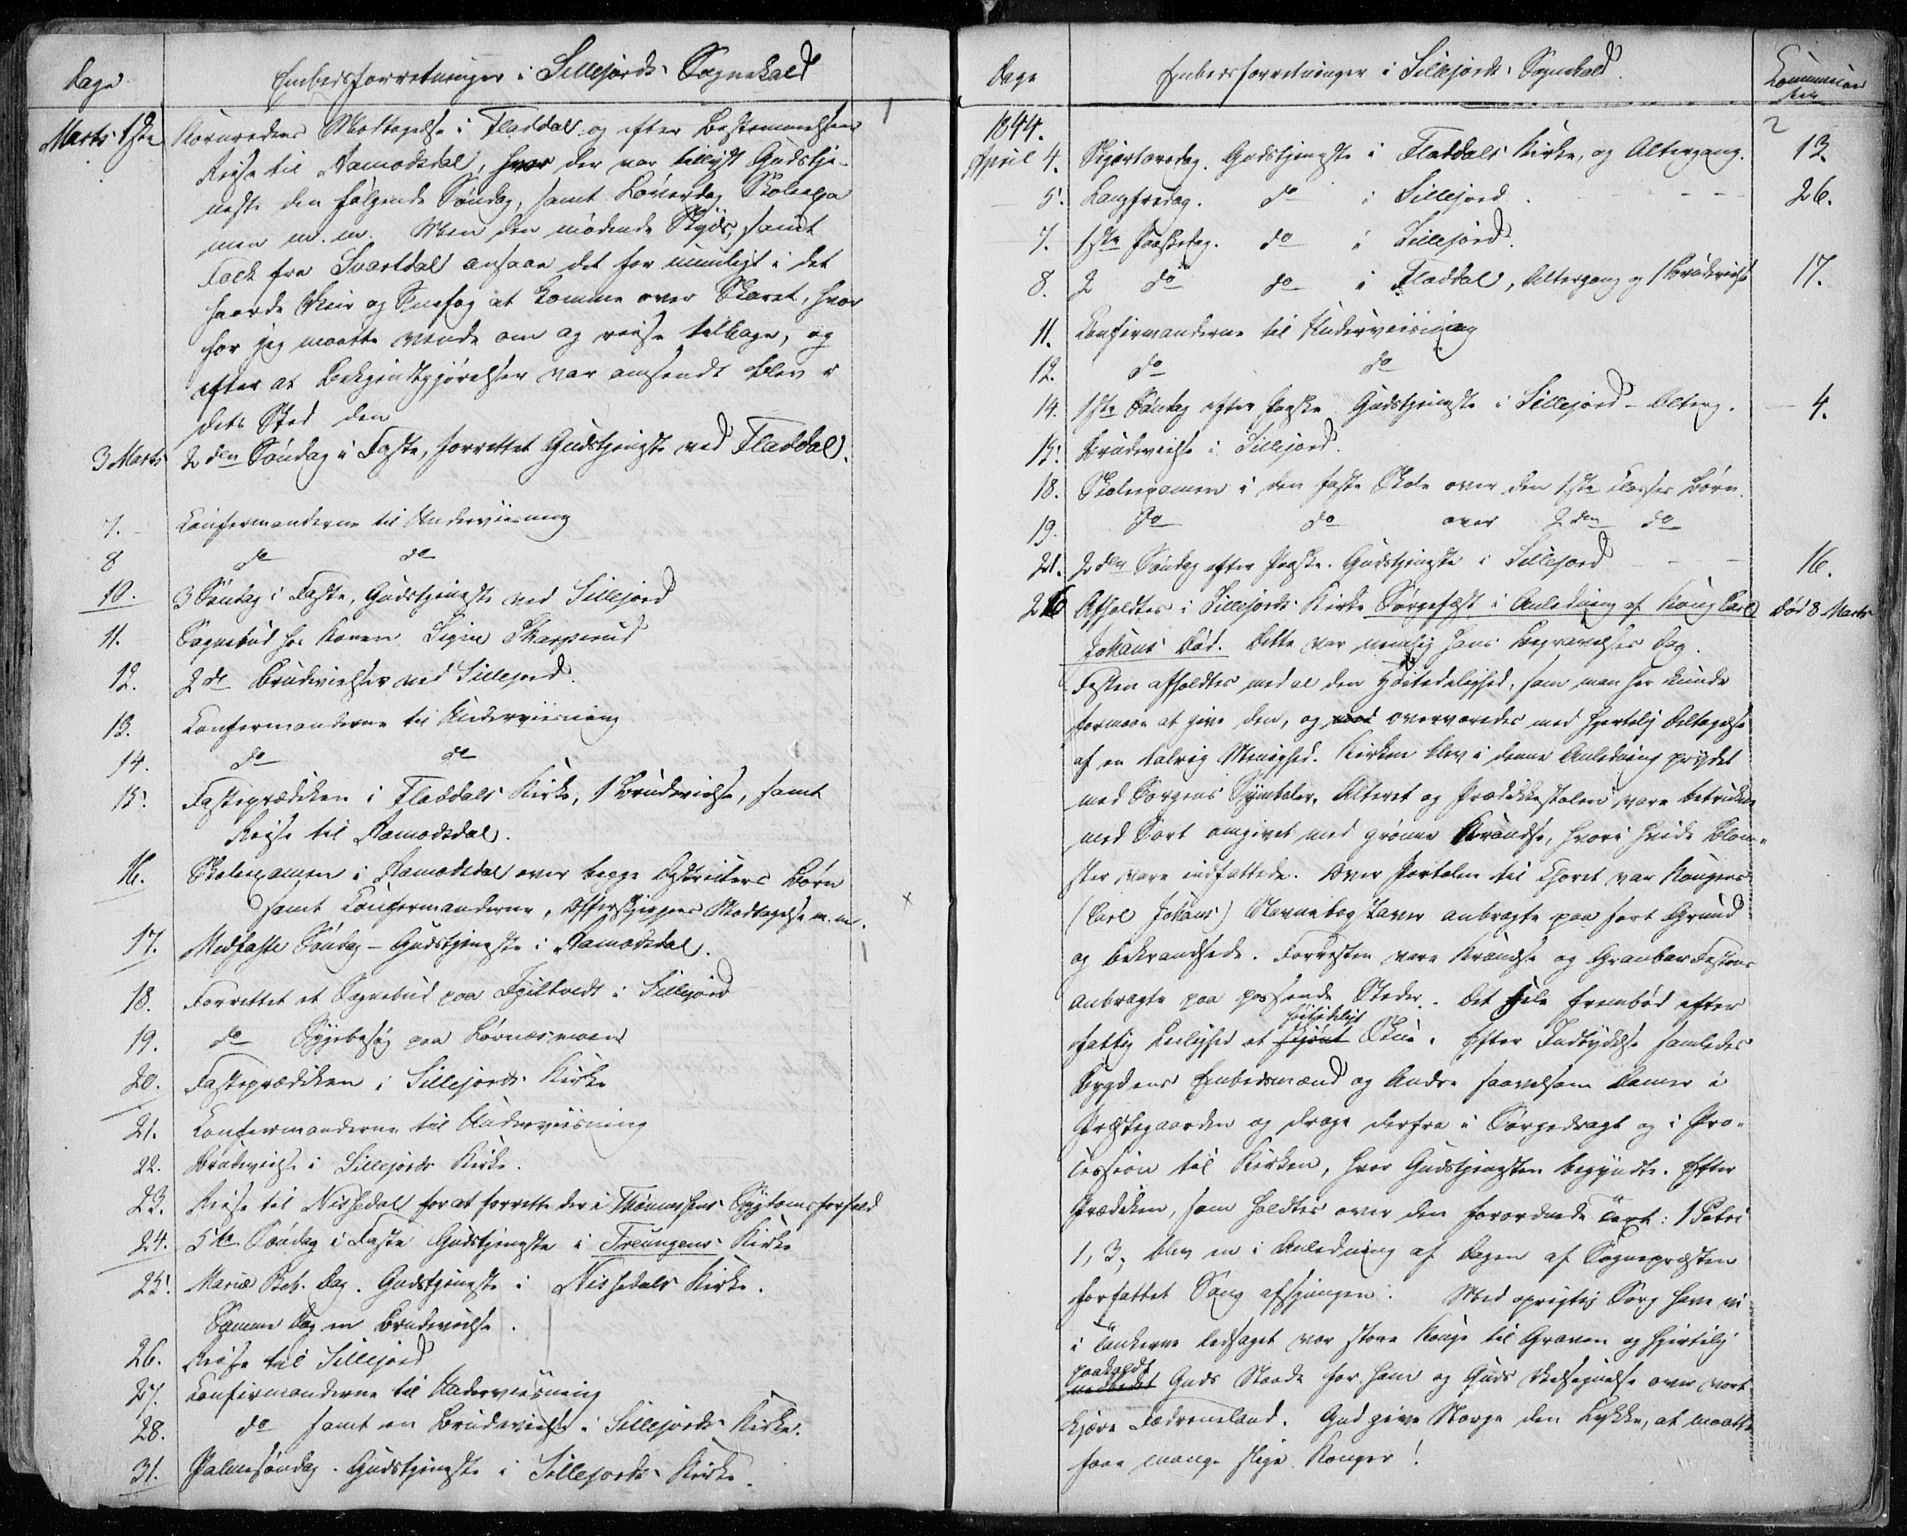 Dage
Embedsforretninger i Sillejords Sognekald
Marts 1ste Kornredens Modtagelse i Fladdal og efter Bestemmelsen
Reise til Aamodsdal, hvor der var tillyst Gudstje-
neste den følgende Søndag, samt Løverdag Skoleexa
men m. m. Men den mødende Skyds, samt
Folk fra Svartdal ansaae det for umuligt i det
haarde Veir og Snefog at komme over Skaret, hvor
for jeg maatte vende om og reise tilbage, og
efter at Bekjendtgjørelser var omsendt blev i
dets Sted den
3 Marts 2den Søndag i Faste, forrettet Gudstjeneste ved Fladdal.
7. Confirmanderne til Underviisning
8 do do
10. 3 Søndag i Faste, Gudstjeneste ved Sillejord
11. Sognebud hos Konen Signe Skapperud
12. 2de Brudevielser ved Sillejord.
13. Confirmanderne til Underviisning
14. do do
15. Fasteprædiken i Fladdals Kirke, 1 Brudevielse, samt
Reise til Aamodsdal.
16. Skoleexamen i Aamodsdal over begge Districters Børn
samt Confirmanderne, Modtagelse m. m.
17. Midfaste Søndag - Gudstjeneste i Aamodsdal.
18. Forrettet et Sognebud paa i Sillejord
19. do Sygebesøg paa
20. Fasteprædiken i Sillejords Kirke
21. Confirmanderne til Underviisning
22. Brudevielse i Sillejords Kirke.
23. Reise til Nissedal for at forrette der i Thomassens Sygdomsforfald
24. 5te Søndag i Faste Gudstjeneste i Treungens Kirke
25. Mariæ Beb. Dag. Gudstjeneste i Nissedals Kirke.
Samme Dag en Brudevielse.
26. Reise til Sillejord
27. Confirmanderne til Underviisning
28. do samt en Brudevielse i Sillejords Kirke.
31. Palmesøndag. Gudstjeneste i Sillejords Kirke.
Dage
Embedsforretninger i Sillejords Sognekald.
2
1844.
April 4. Skjærtorsdag. Gudstjeneste i Fladdals Kirke, og Altergang. 13.
5. Langfredag. do i Sillejord. 26.
7. 1ste Paaskedag. do i Sillejord.
8. 2 do do i Fladdal, Altergang og 1 Brudevielse 17.
11. Confirmanderne til Underviisning
12. do do
14. 1ste Søndag efter Paaske Gudstjeneste i Sillejord - Alterg. 4.
15. Brudevielse i Sillejord.
18. Skoleexamen i den faste Skole over den 1ste Classes Børn.
19. do do over 2den do
21. 2den Søndag efter Paaske. Gudstjeneste i Sillejord 16.
26 Afholdtes i Sillejords Kirke Sørgefest i Anledning af Kong Carl død 8 Marts
Johans Død. Dette var nemlig hans Begravelses Dag.
Festen afholdtes med al den Høitidelighed, som man her kunde
formaae at give den, og overværedes med hjertelig Deltagelse
af en talrig Menighed. Kirken blev i denne Anledning prydet
med Sorgens Symboler. Alteret og Prædikestolen vare betrukne
med Sort omgivet med grønne Krandse, hvori hvide Blom-
ster vare indfattede. Over Portalen til Choret var Kongens
(Carl Johans) Navnebogstaver anbragte paa sort Grund
og bekrandsede. Forresten vare Krandse og Granbar Festons
anbragte paa passende Steder. Det Hele frembød efter
høitideligt
fattig Leilighed et skjønt Skue. Efter Indbydelse samledes
Bygdens Embedsmænd og Andre saavelsom Damer i
Præstegaarden og drage derfra i Sørgedragt og i Pro-
cession til Kirken, hvor Gudstjenesten begyndte. Efter
Prædiken, som holdtes over den forordnede Text: 1 Petri
1, 3, blev en i Anledning af Dagen af Sognepræsten
forfattet Sang afsjungen. Med oprigtig Sorg have vi
i Tankerne ledsaget vor store Konge til Graven og hjertelig
paakaldt
nedbedet Guds Naade for ham og Guds Velsignelse over vort
kjære Fædreneland. Gud give Norge den Lykke, at maatte
faae mange slige Konger!